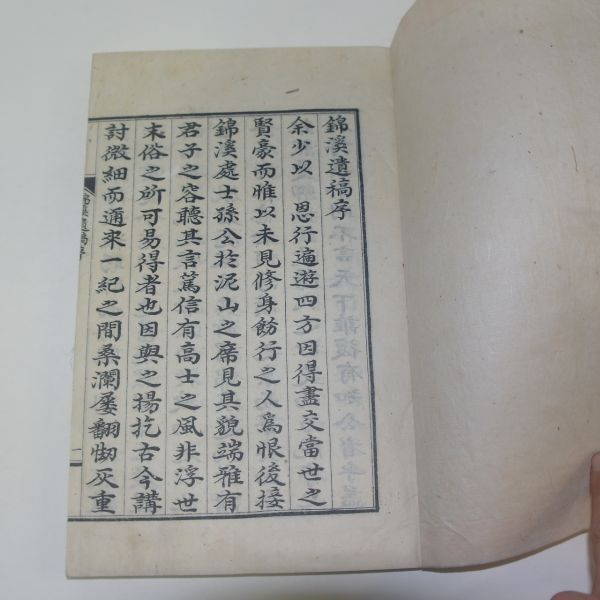 錦溪遺稿序
余少以 恩行遍遊四方因得盡交當世之
賢豪而唯以未見修身飭行之人爲恨後接
錦溪處士孫公於泥山之席見其貌端雅有
君子之容聽其言篤信有高士之風非浮世
末俗之所可易得者也因與之揚扢古今講
討微細而邇來一紀之間桑瀾屢翻劫灰重
錦溪遺稿序
一